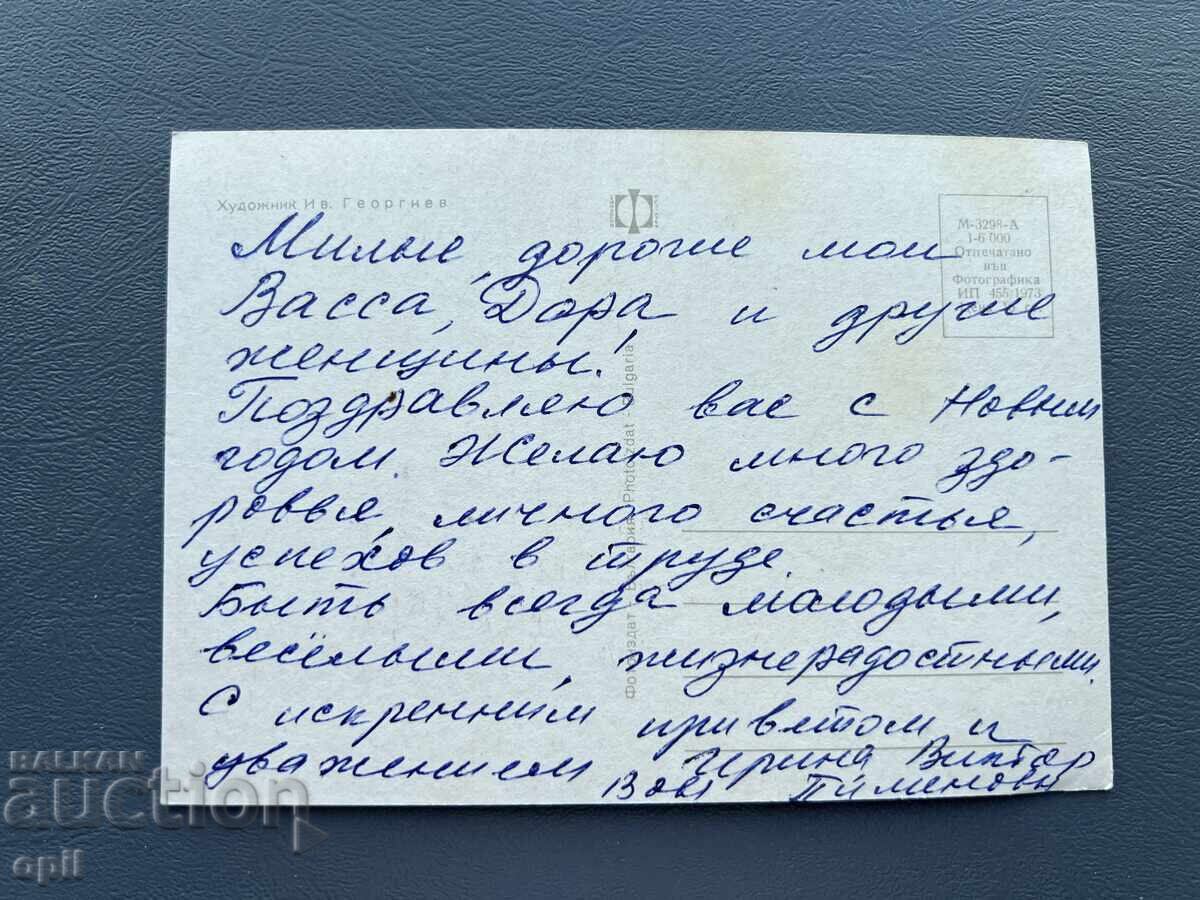 Художник Ив. Георгиев
М-3298-А
1-6 000
Отпечатано
във
Фотографика
ИП 455/1973
Милые, дорогие мои
Васса, Дора и другие
женщины!
Поздравляю вас с Новым
годом. Желаю много здо-
ровья, личного счастья,
успехов в труде.
Быть всегда молодыми,
весёлыми, жизнерадостными.
С искренним приветом и
уважением Ирина Виктор
Вова Пименовы
Фотоиздат България Photoizdat - Bulgaria
BALKAN
auction
opil